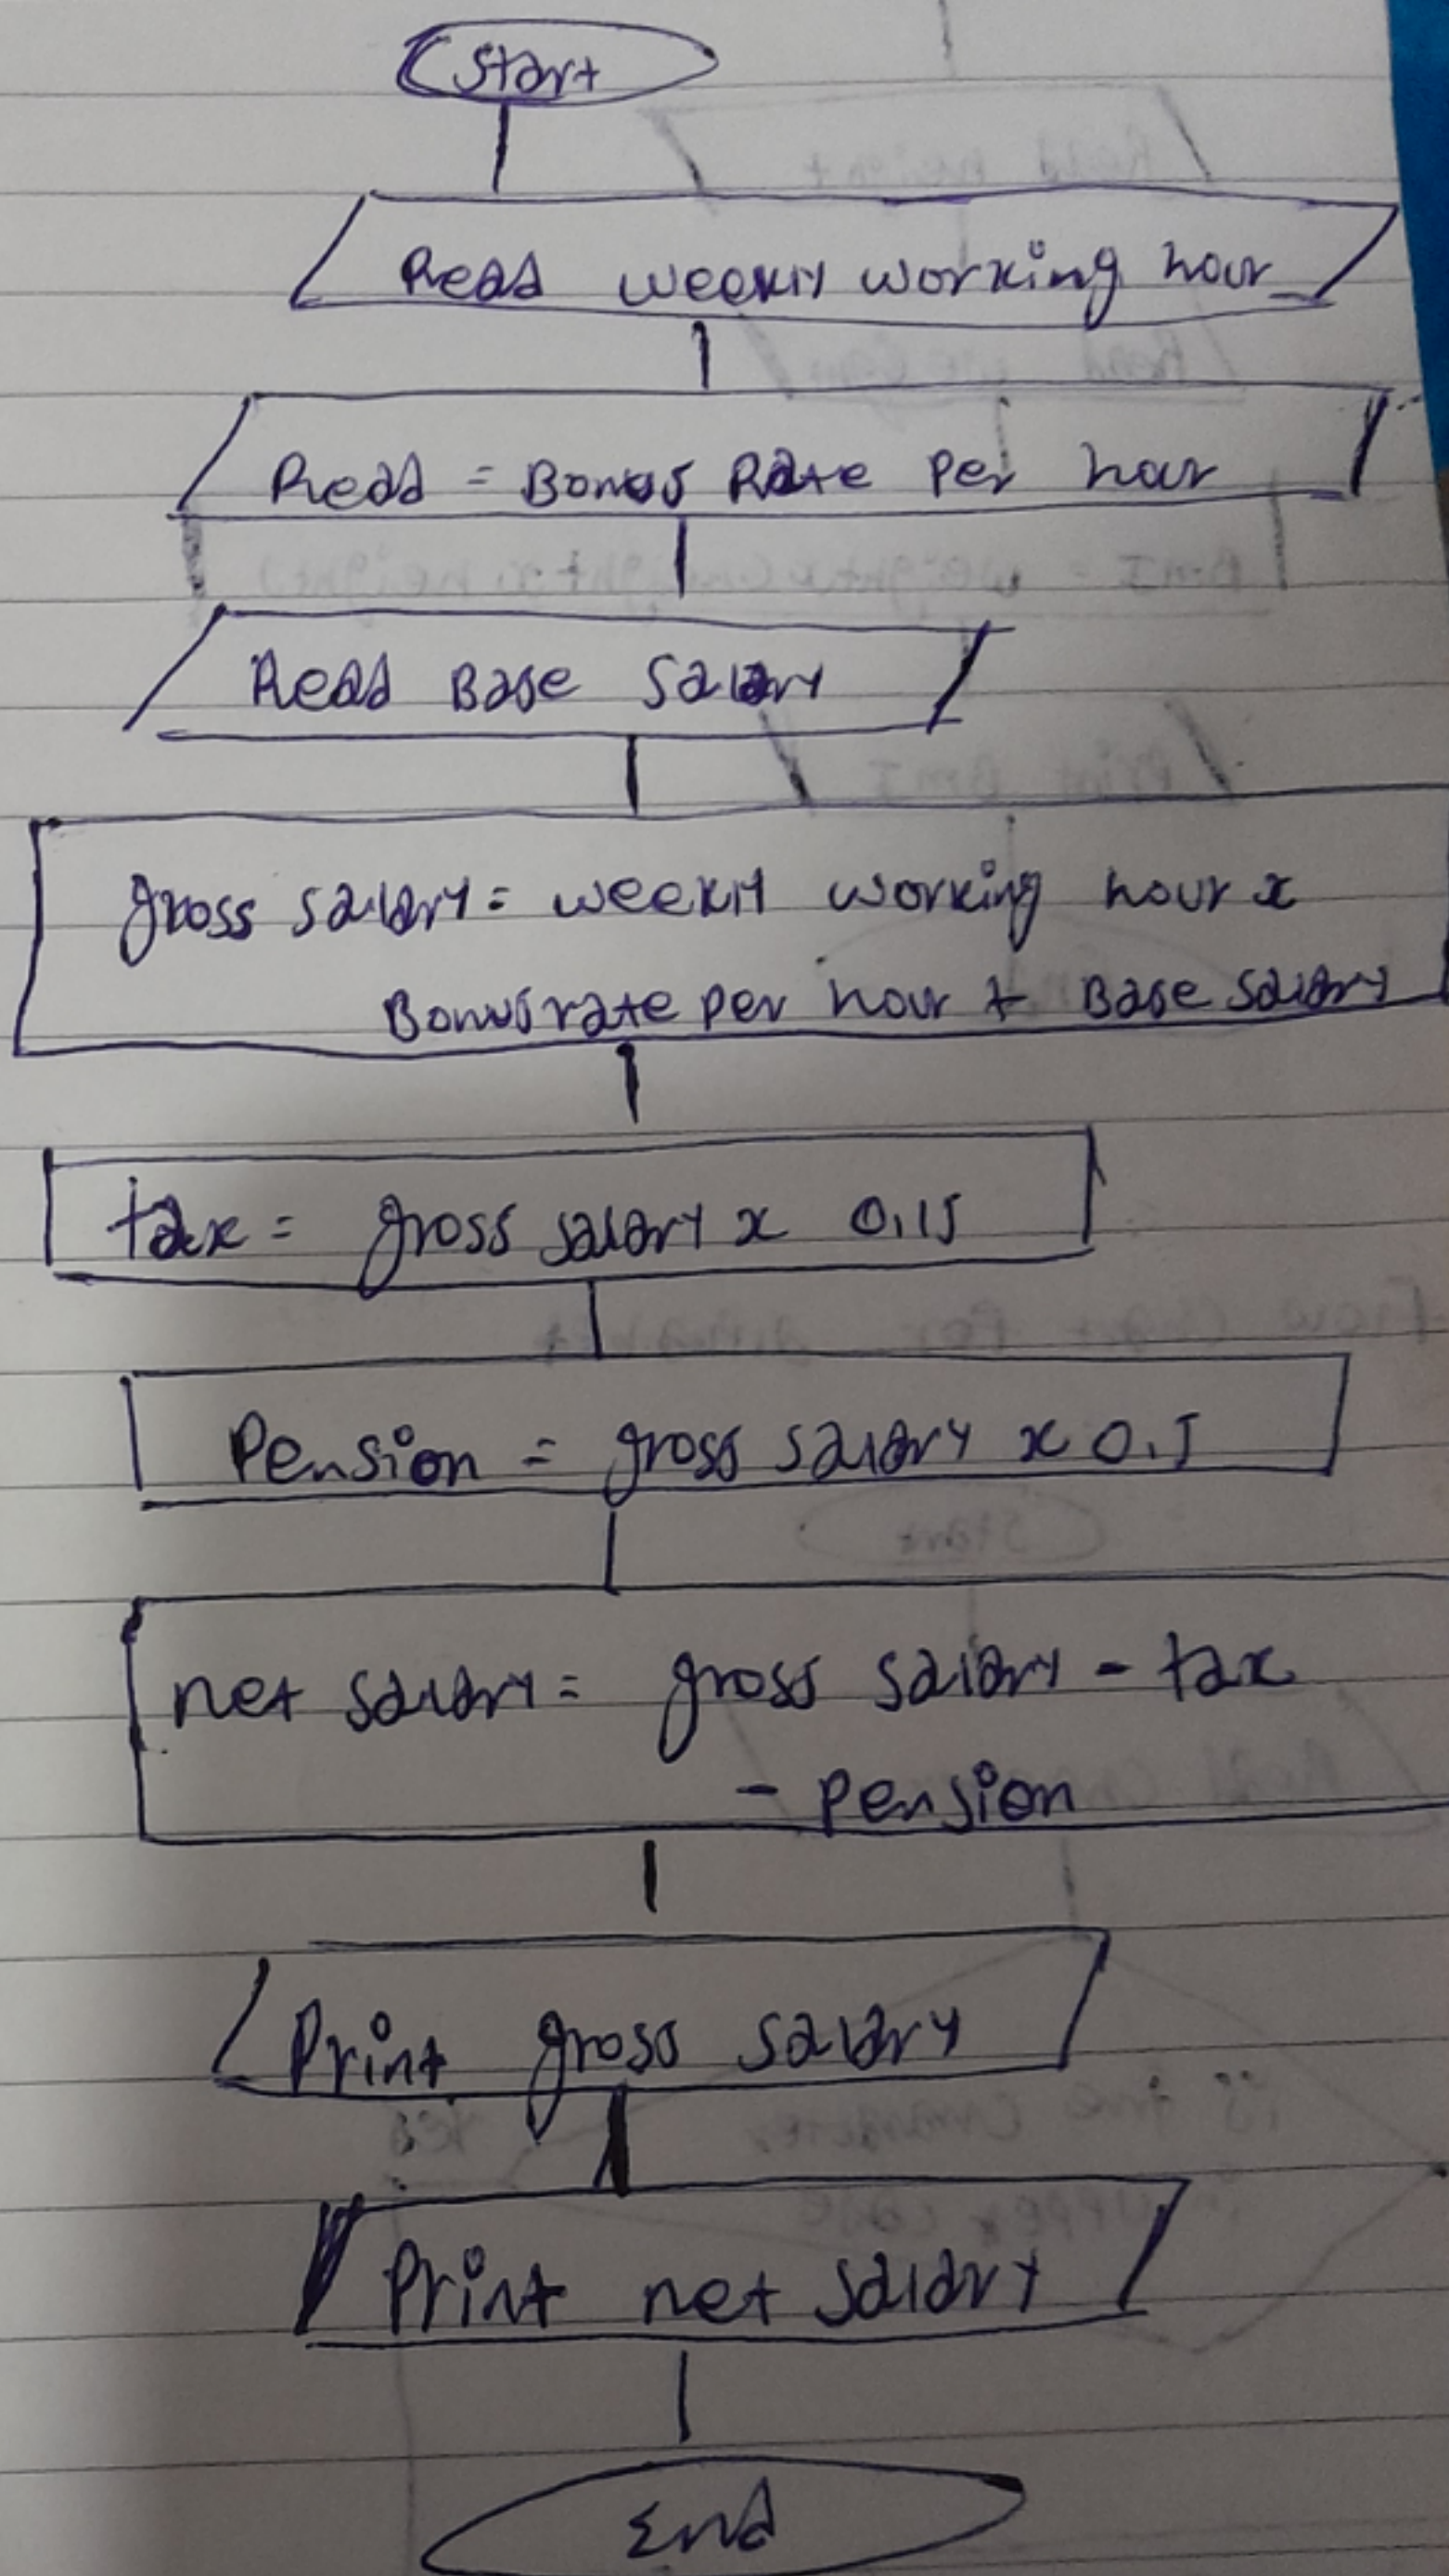 Start
Read weekly working hour
Read = Bonus Rate Per hour
Read Base Salary
gross salary = weekly working hour x
Bonus rate per hour + Base salary
tax = gross salary x 0.15
Pension = gross salary x 0.5
net salary = gross salary - tax
- pension
Print gross salary
Print net salary
End